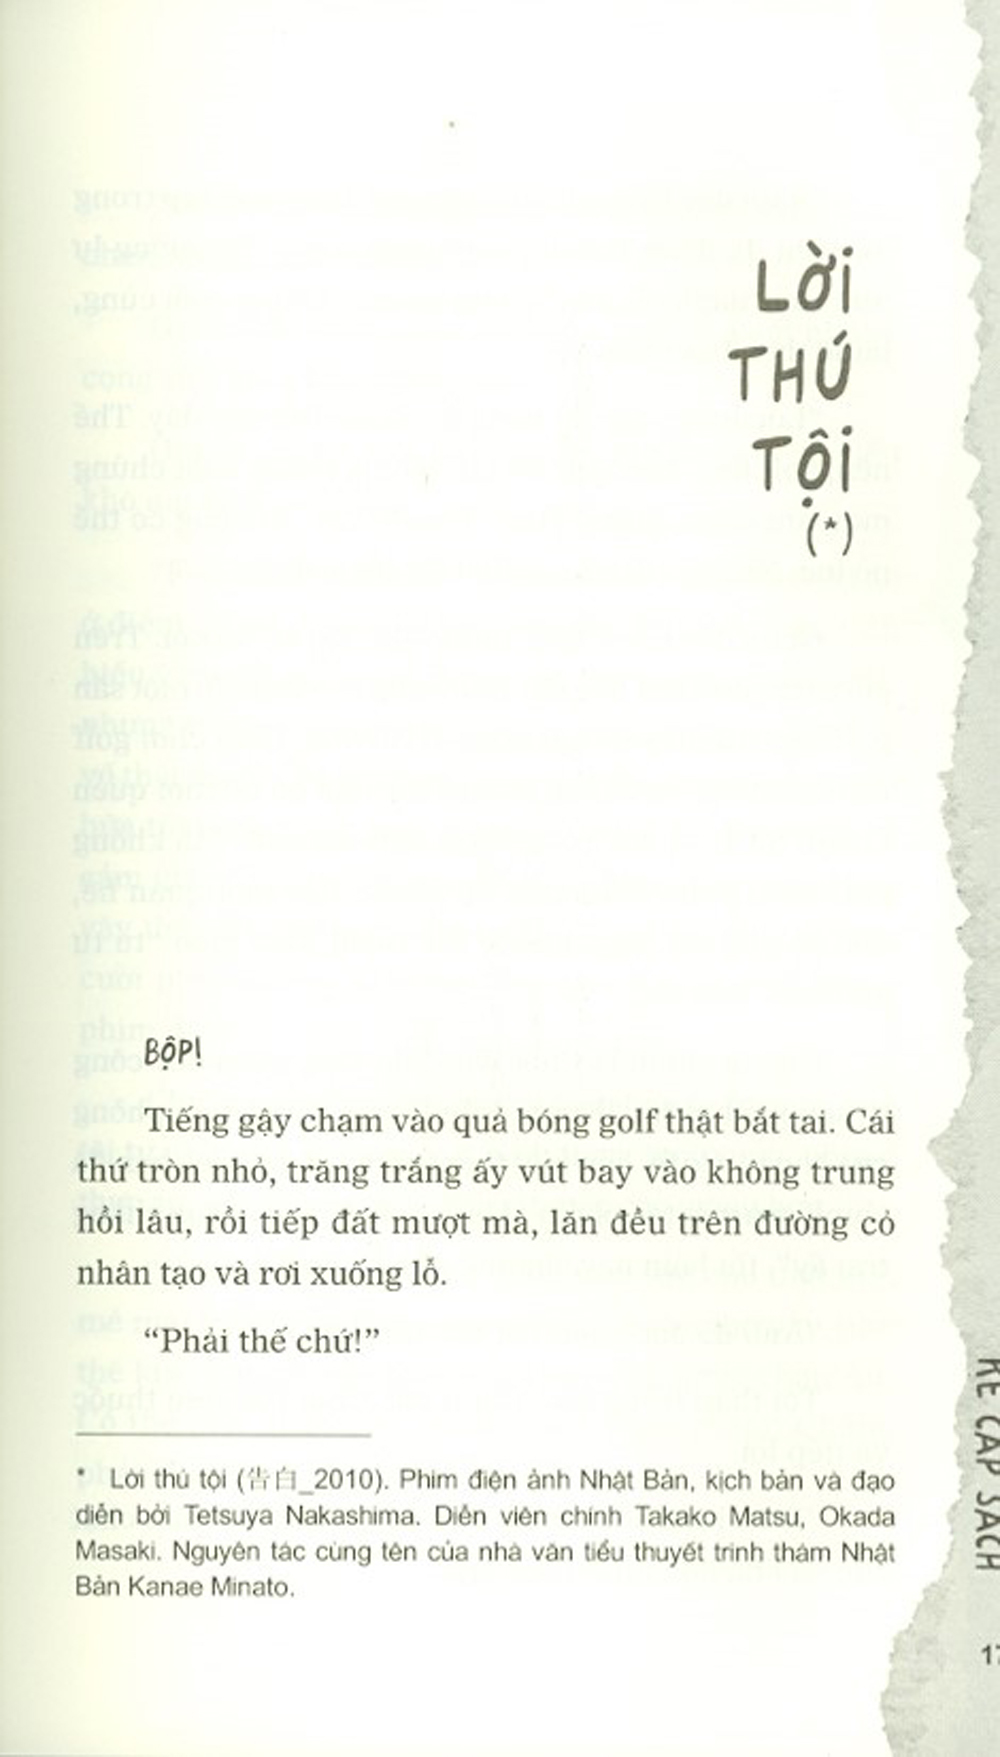 LỜI
THÚ
TỘI
(*)
BỘP!
Tiếng gậy chạm vào quả bóng golf thật bắt tai. Cái
thứ tròn nhỏ, trăng trắng ấy vút bay vào không trung
hồi lâu, rồi tiếp đất mượt mà, lăn đều trên đường cỏ
nhân tạo và rơi xuống lỗ.
“Phải thế chứ!”
* Lời thú tội (告白_2010). Phim điện ảnh Nhật Bản, kịch bản và đạo
diễn bởi Tetsuya Nakashima. Diễn viên chính Takako Matsu, Okada
Masaki. Nguyên tác cùng tên của nhà văn tiểu thuyết trinh thám Nhật
Bản Kanae Minato.
KẺ CẮP SÁCH
17